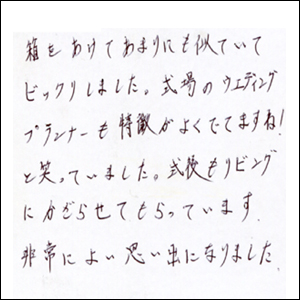 箱をあけてあまりにも似ていて
ビックリしました。式場のウエディング
プランナーも特徴がよくでてますね!
と笑っていました。式後もリビング
にかざらせてもらっています.
非常によい思い出になりました